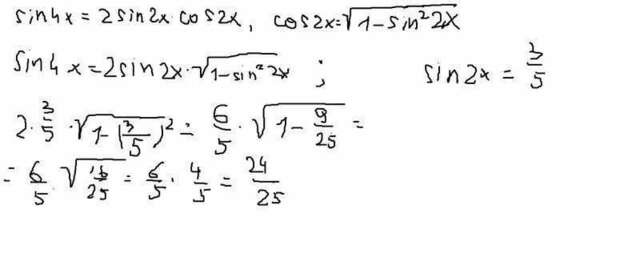 sin4x = 2sin2x·cos2x, cos2x=√(1-sin²2x)
sin4x=2sin2x·√(1-sin²2x) ; sin2x = 3/5
2·3/5·√(1-(3/5)²) = 6/5·√(1-9/25) =
= 6/5·√(16/25) = 6/5·4/5 = 24/25